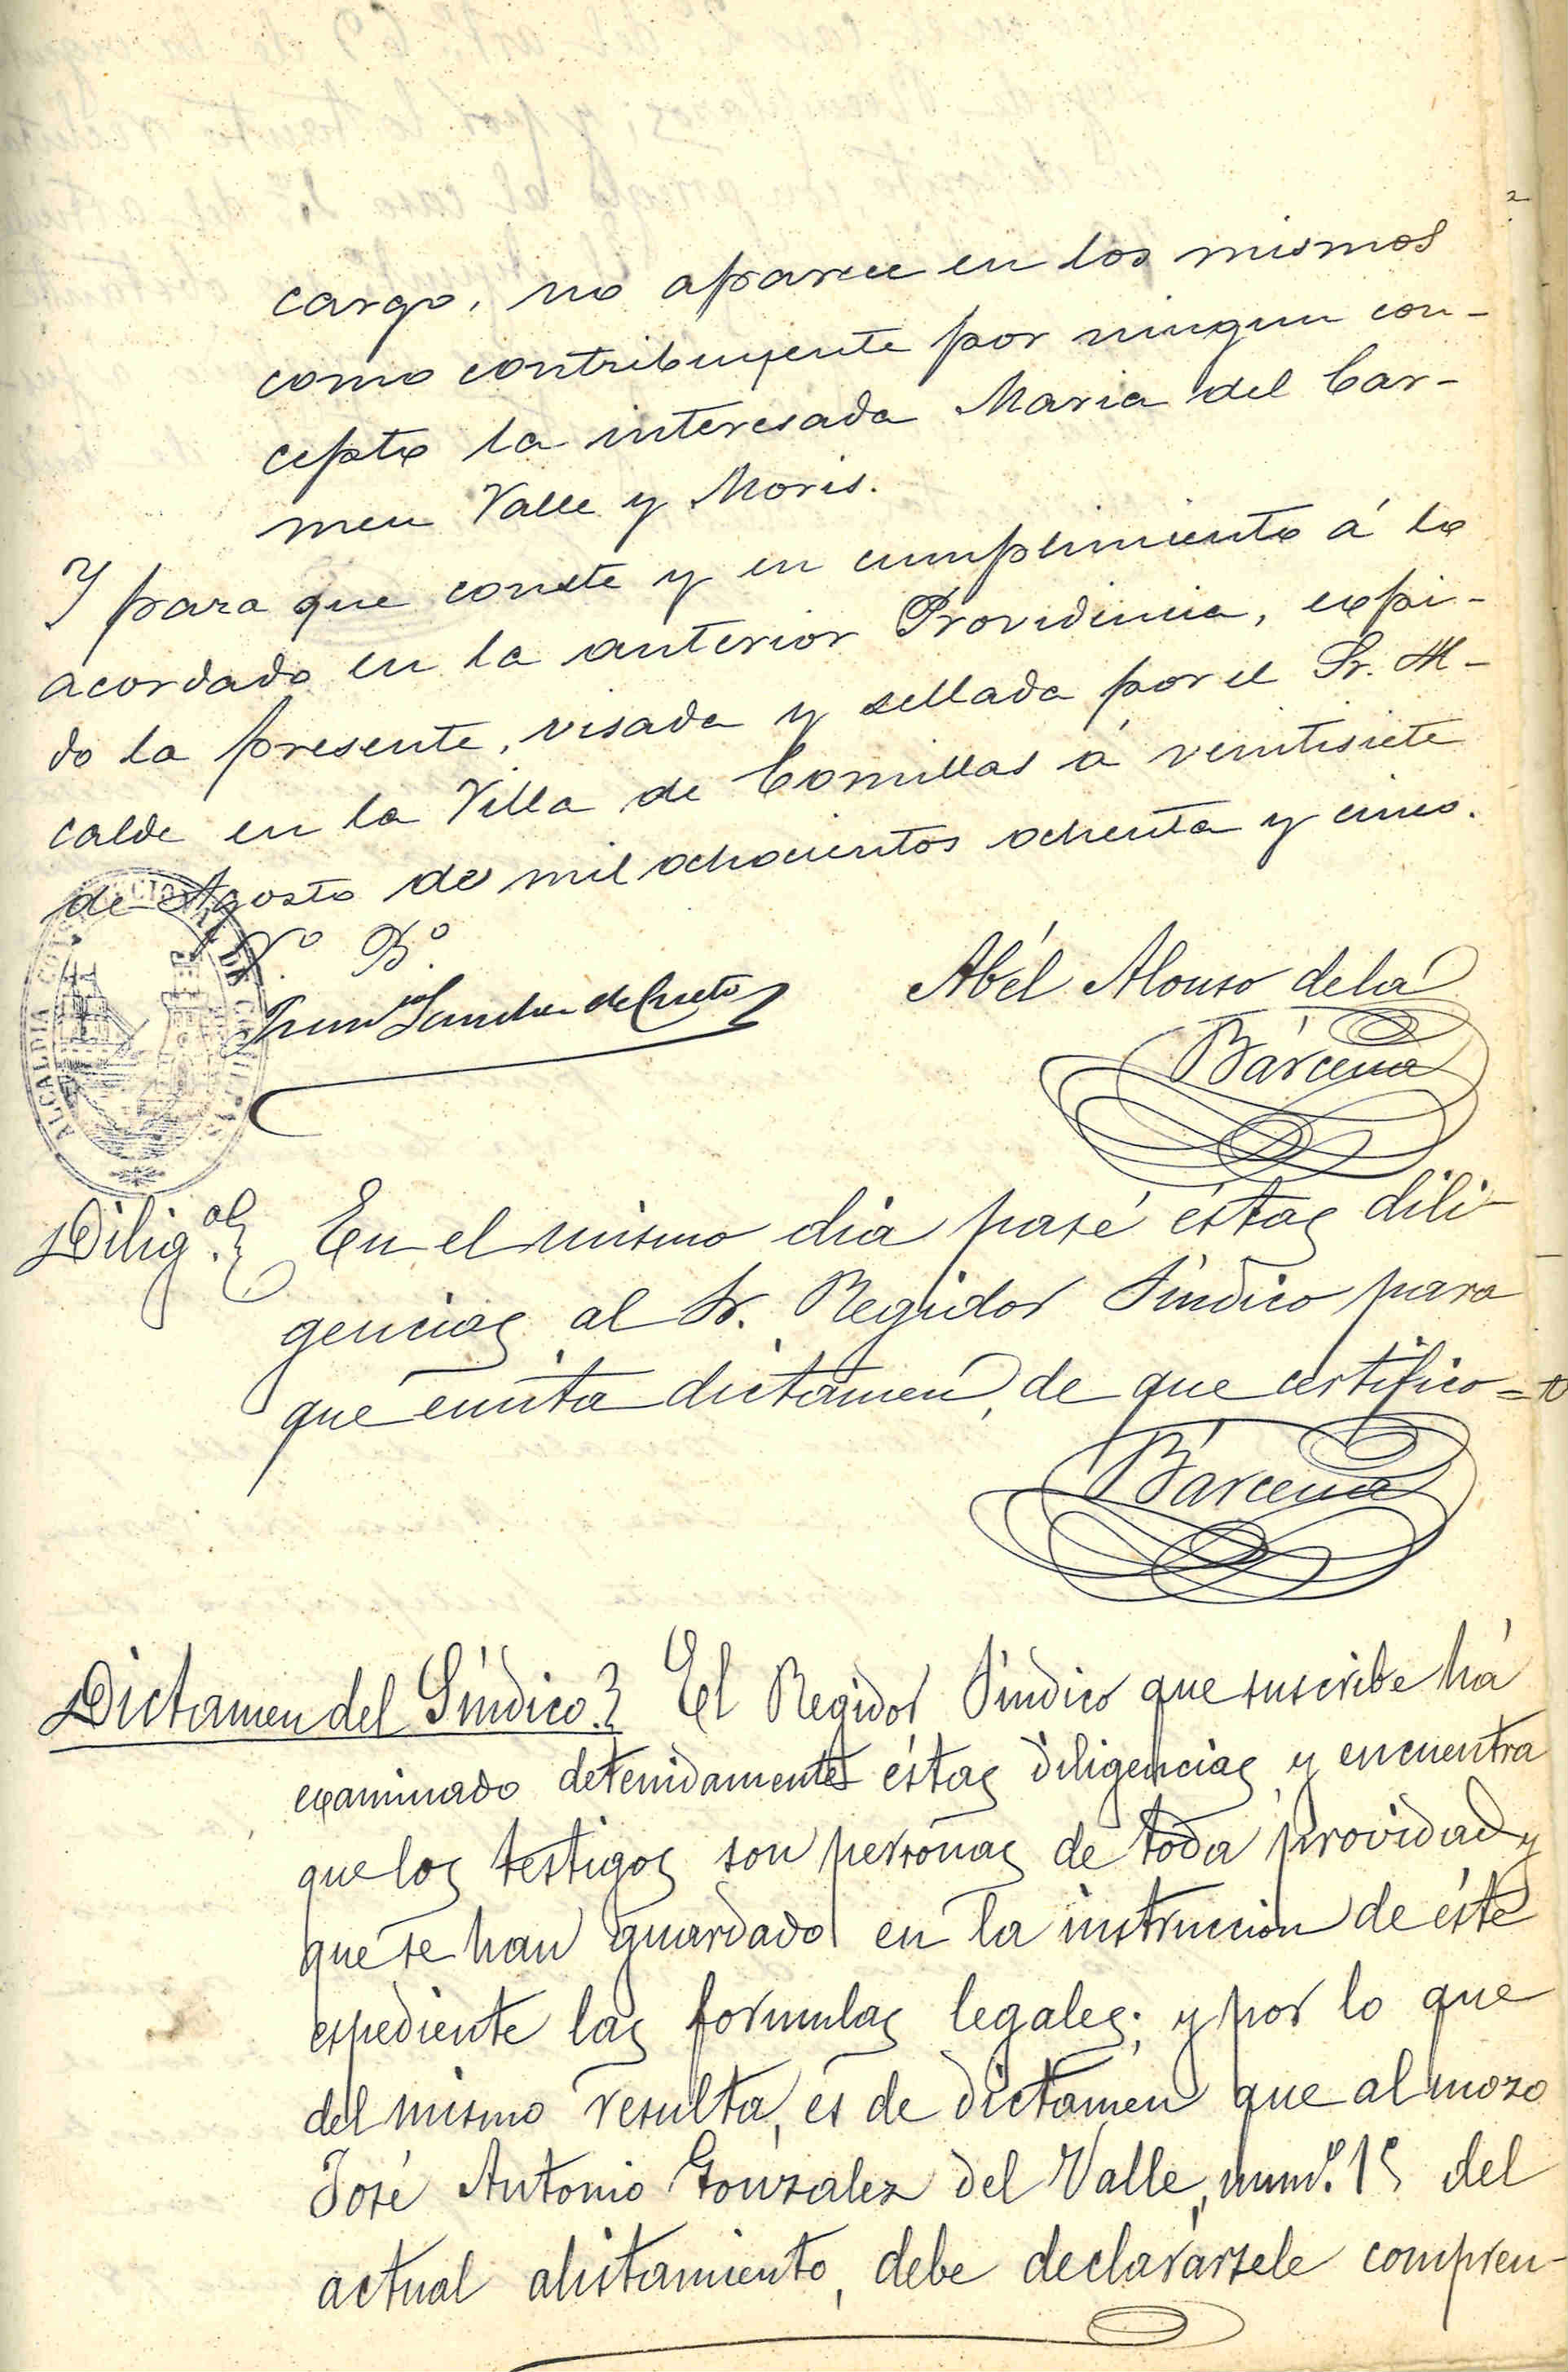 cargo, no aparece en los mismos
como contribuyente por ningun con-
cepto la interesada Maria del Car-
men Valle y Moris.
Y para que conste y en cumplimiento á lo
acordado en la anterior Providencia, expi-
do la presente, visada y sellada por el Sr. Al-
calde en la Villa de Comillas á veintisiete
de Agosto de mil ochocientos ochenta y cinco.
V.º B.º
Sanchez de Cueto
Abél Alonso de la
Bárcena
ALCALDIA CONSTITUCIONAL DE COMILLAS
Dilig.
En el mismo dia pasé éstas dili-
gencias al Sr. Regidor Síndico para
que emita dictámen, de que certifico=
Bárcena
Dictamen del Síndico. El Regidor Síndico que suscribe há
examinado detenidamente éstas diligencias y encuentra
que los testigos son personas de toda providad y
que se han guardado en la instruccion de éste
espediente las formulas legales; y por lo que
del mismo resulta, es de dictámen que al mozo
José Antonio Gonzalez del Valle, num.º 15 del
actual alistamiento, debe declarársele compren-